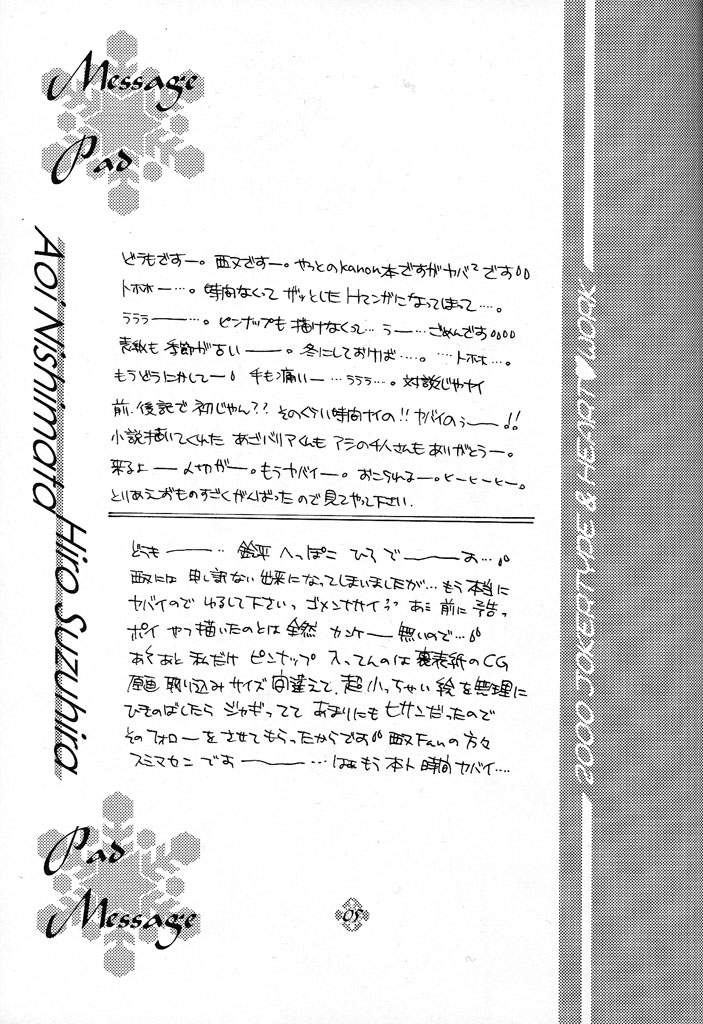 Message
Pad
Aoi Nishimata
どうもですー。西又ですー。やっとのkanon本ですがヤバ²です
トホホー…。時間なくって ザッとした Hマンガになってまって…。
ラララー――…。ピンナップも 描けなくって… うー… ごめんです
表紙も 季節が古い――。冬にしておけば…。…トホホ…。
もうどうにかしてー 手も痛いー…ラララ…。対談じゃナイ
前、後記で 初じゃん?? そのくらい時間ナイの!! ヤバイのぅ――!!
小説描いてくれた あざバリアくんも アシの4人さんも ありがとうー。
来るよ ――人切がー。もうヤバイー。おこられるー。ヒーヒーヒー。
とりあえおものすごくがんばった ので 見てやって下さい.
Hiro Suzuhira
どうも―――‥ 鈴平 へっぽこ ひろ で―――お…
西又には 申し訳ない 出来になってしまいましたが… もう 本当に
ヤバイので ゆるして下さいっ ゴメンナサイ あと 前に 予告っ
ポイ やつ描いたのとは 全然 カンケー 無いので…
あくあと 私だけ ピンナップ 入ってんのは 裏表紙の CG
原画 取り込み サイズ 間違えて、超 小っちゃい 絵 を 無理に
ひきのばしたら ジャギってて あまりにも ヒサンだったので
その フォローをさせてもらったからです 西又Fanの 方々
スミマセン でお―――…はぁ もう 本ト 時間 ヤバイ…
Pad
Message
05
2000 JOKERTYPE & HEART♥WORK